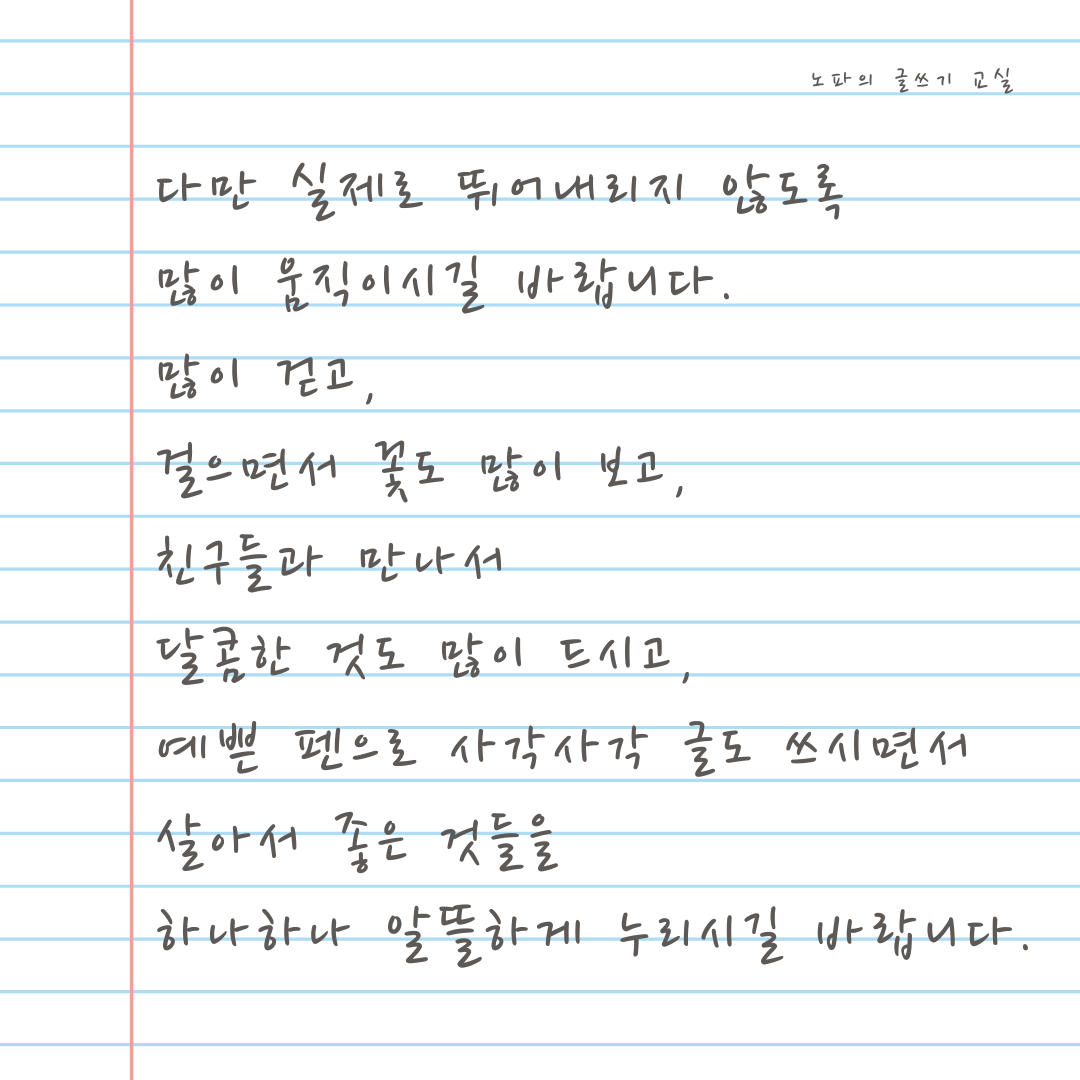 노파의 글쓰기 교실
다만 실제로 뛰어내리지 않도록
많이 움직이시길 바랍니다.
많이 걷고,
걸으면서 꽃도 많이 보고,
친구들과 만나서
달콤한 것도 많이 드시고,
예쁜 펜으로 사각사각 글도 쓰시면서
살아서 좋은 것들을
하나하나 알뜰하게 누리시길 바랍니다.